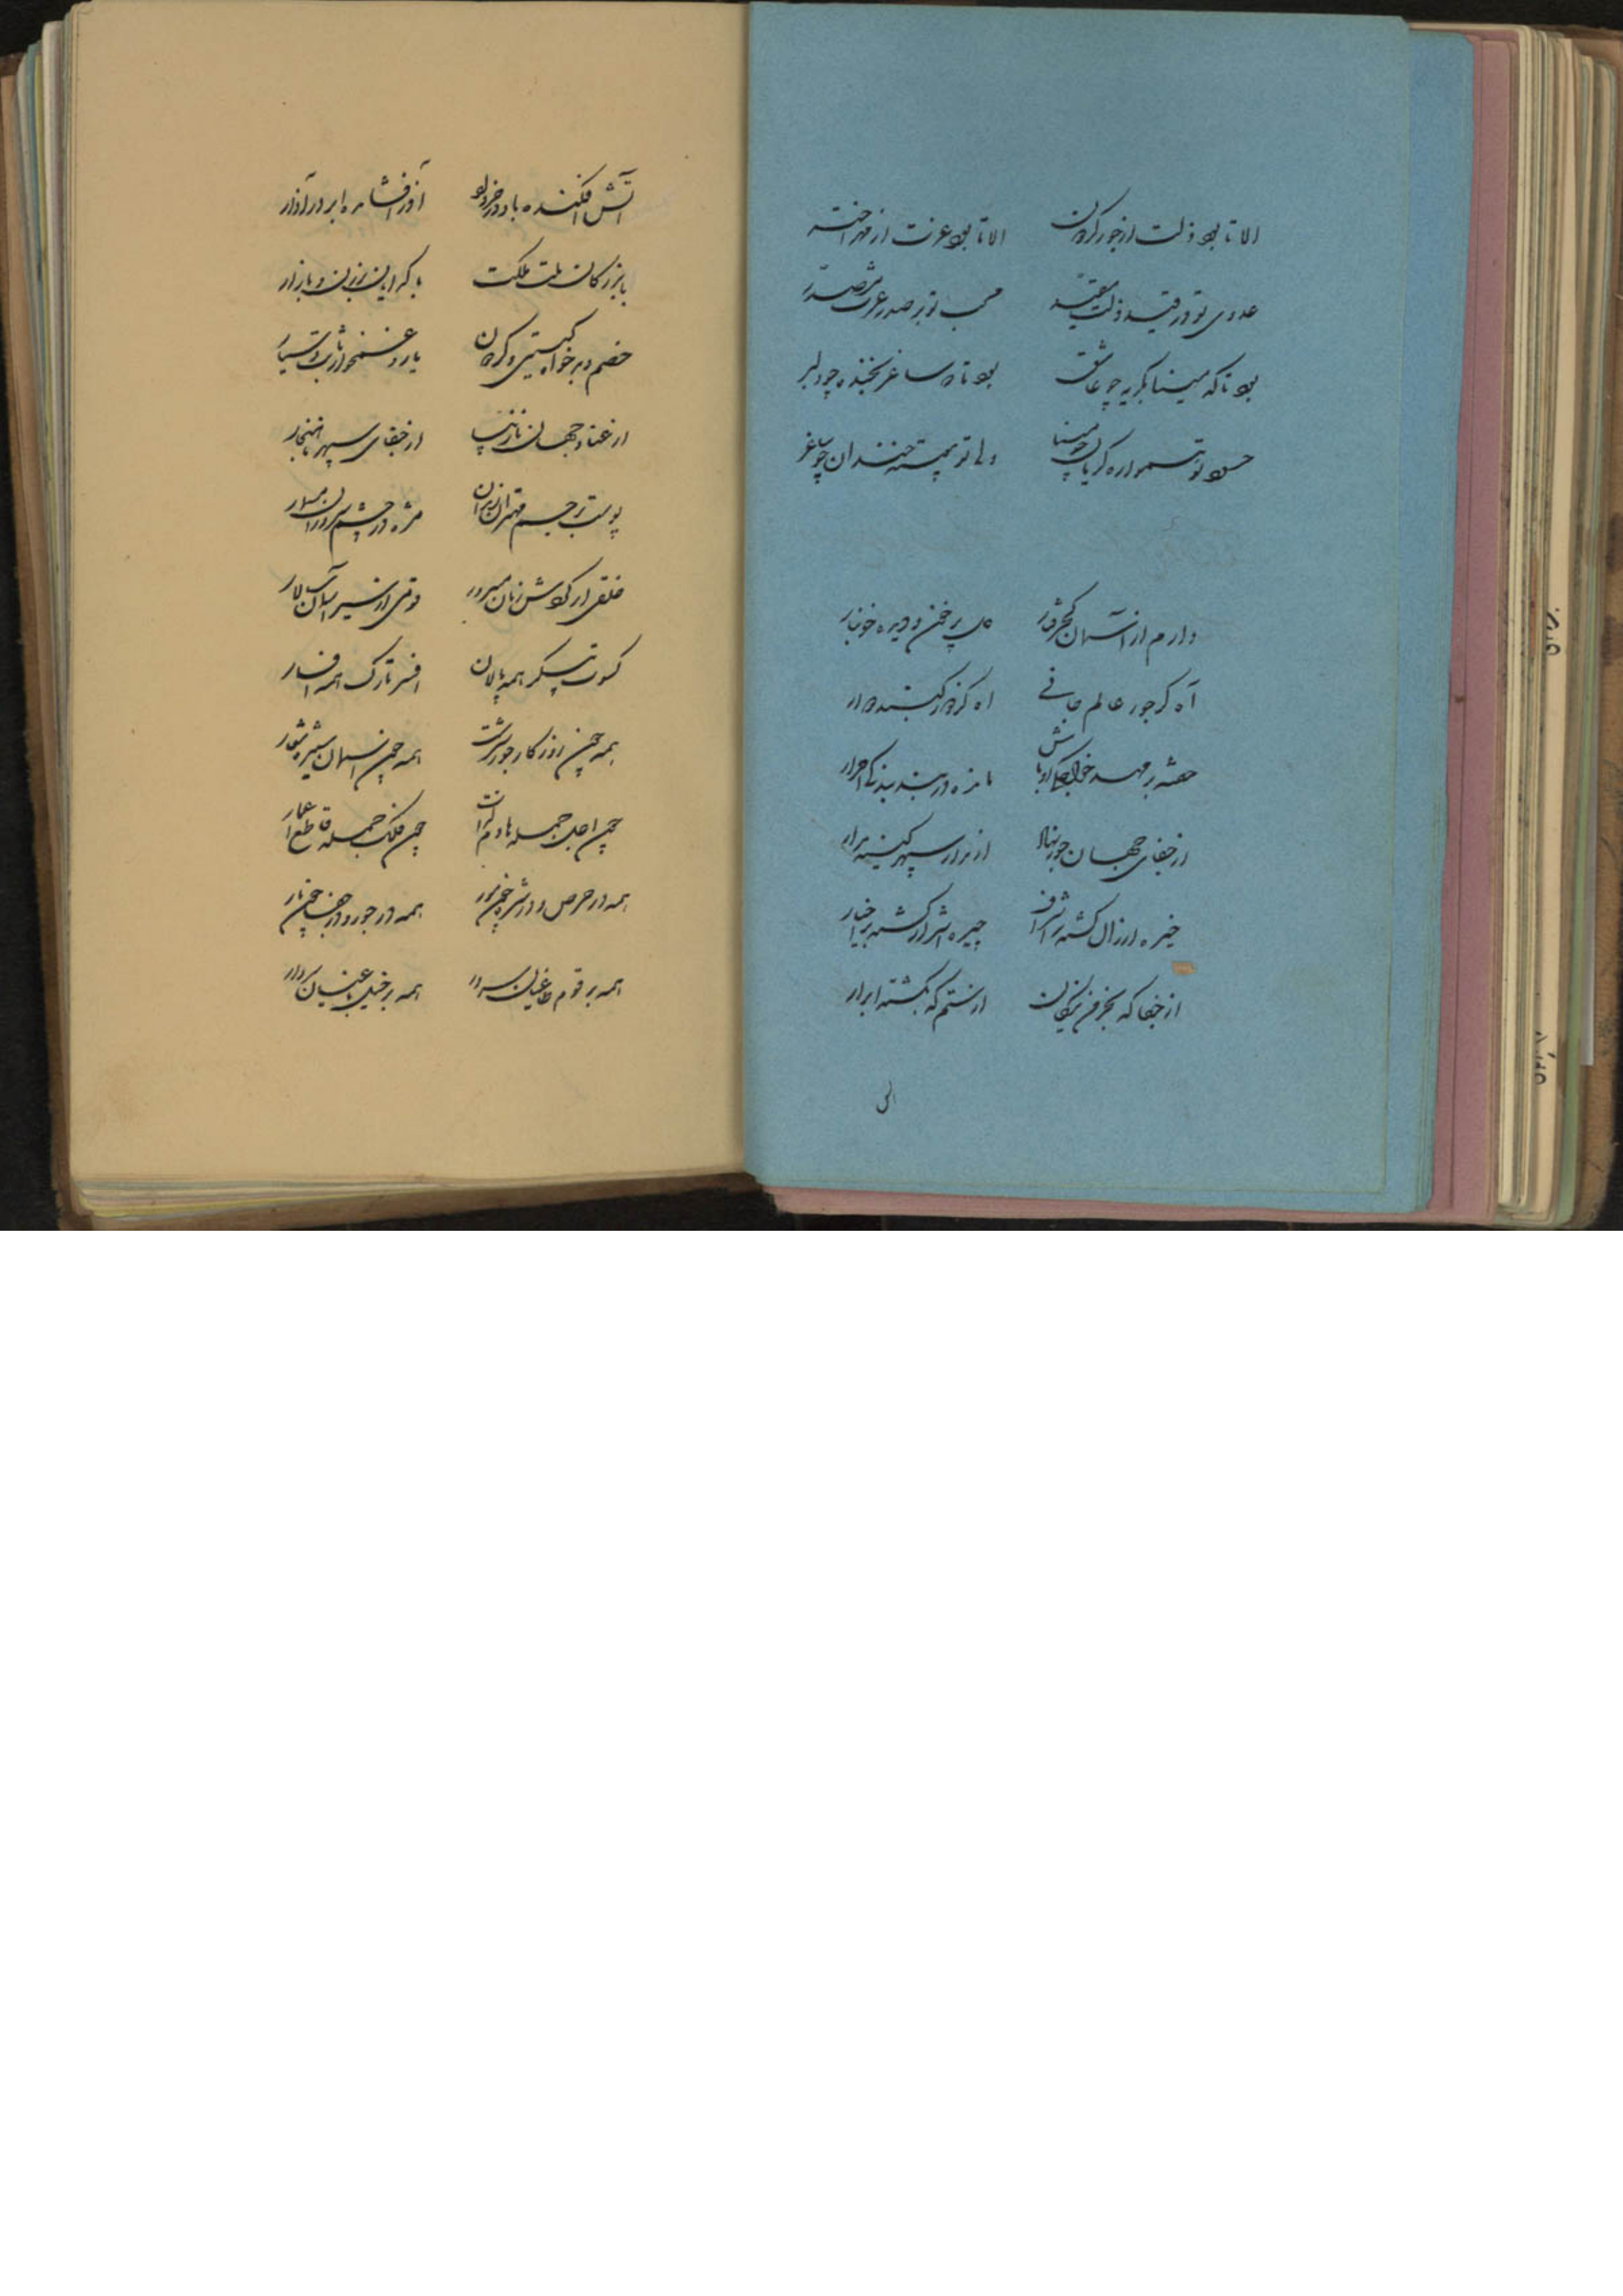 الا تا بود ذلت از جور گردون الا تا بود عزت از مهر اختر
عدوی تو در قید ذلت مقید محب تو بر صدر عزت مصدر
بود تا که مینا بگرید چو عاشق بود تا که ساغر بخندد چو دلبر
حسود تو همواره گریان چو مینا ولی تو پیوسته خندان چو ساغر
دارم از آسمان کجرفتار دلی پر خون و دیده خونبار
آه کز جور عالم جافی آه کز گنبد دوار
خفته بر مهد خواجگی اوباش مانده در بند بندگی احرار
از جفای جهان جور نهاد از مدار سپهر کینه مدار
خیره ارذال گشته بر اشراف چیره اشرار گشته بر اخیار
از جفا که بجز فن نیکان از ستم که بکشته ابرار
آتش افکنده باد در خرداد آذر افشانده ابر در آذار
با بزرگان ملت و ملکت با گدایان برزن و بازار
خصم و بدخواه گیتی و گردون یار و غمخوار ثابت و سیار
از عناد جهان از جفای سپهر ناهنجار
پوست بر جسم مهتران زندان مژه در چشم سروران مسمار
خلقی از گردش زمان سرور قومی از سیر آسمان سالار
کسوت پیکر همه پالان افسر تارک همه افسار
همه چون روزگار جور سرشت همه چون آسمان ستیزه شعار
چون اجل جمله هادم لذات چون فلک جمله قاطع اعمار
همه در حرص و در شره چون مور همه در جور و در جفا چون مار
همه بر قوم طاغیان سرور همه بر خیل باغیان سردار